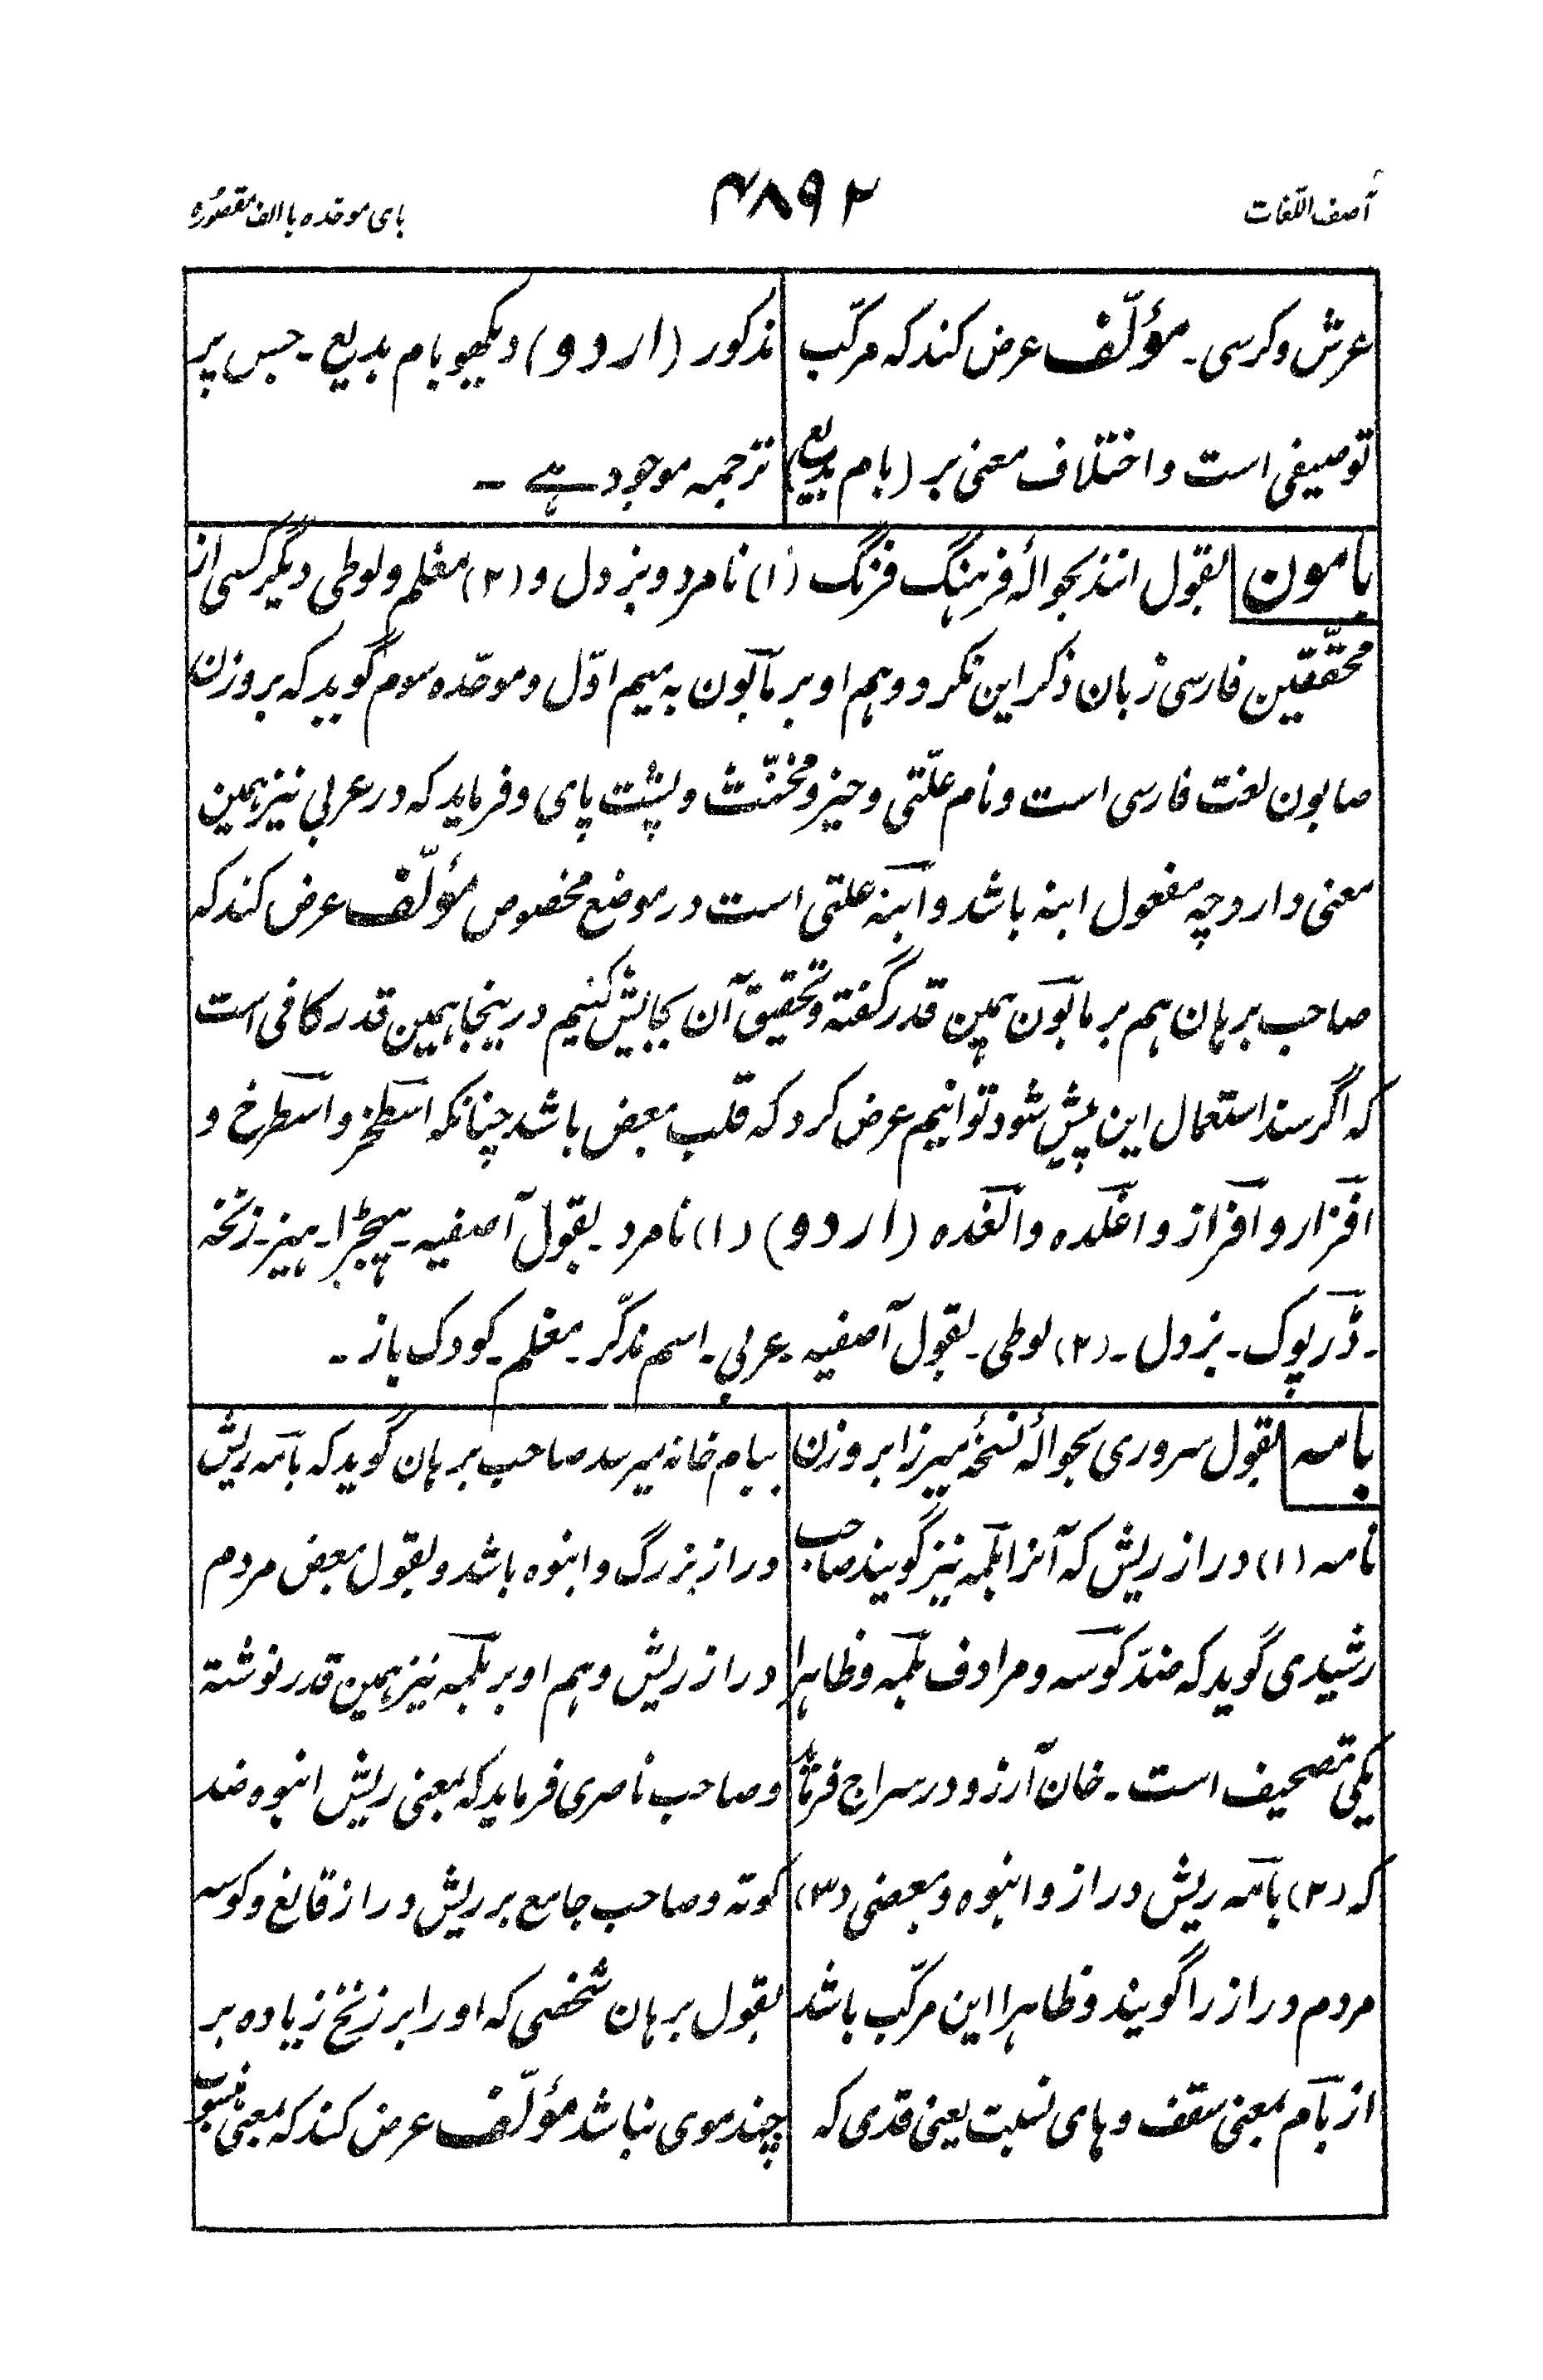 آصف اللّغات
۴۸۹۲
بای موحّده با الف مقصوره
عرش و کرسی ۔ مؤلّف عرض کند که مرکّب
توصیفی است و اختلاف معنی بر (بام بدیع)
مذکور (اردو) دیکھو بام بدیع ۔ جس پر
ترجمہ موجود ہے ۔
بامون بقول انند بحوالۂ فرہنگ فرنگ (۱) نامرد و بزدل و (۲) مغلم و لوطی دیگر کسی از
محقّقین فارسی زبان ذکر این نکرد و ہم او بر مابون به میم اوّل و موحّده سوم گوید که بر وزن
صابون لغت فارسی است و نام علّتی و حیز و مخنّث و پشت پای و فرماید که در عربی نیز ہمین
معنی دارد چه مفعول ابنه باشد و ابنه علتی است در موضع مخصوص مؤلّف عرض کند که
صاحب برہان ہم بر مابون ہمین قدر گفته و تحقیق آن بجایش کنیم درینجا ہمین قدر کافی است
که اگر سند استعمال این پیش شود توانیم عرض کرد که قلب بعض باشد چنانکه اسطخر و اسطرخ و
افزار و افراز و اغلده و الغده (اردو) (۱) نامرد ۔ بقول آصفیہ ۔ ہیجڑا ۔ ہیز ۔ زنخہ
۔ ڈرپوک ۔ بزدل ۔ (۲) لوطی ۔ بقول آصفیہ ۔ عربی ۔ اسم مذکّر ۔ مغلم ۔ کودک باز ۔
بامه بقول سروری بحوالۂ نسخۂ میرزا بر وزن
نامه (۱) دراز ریش که آنرا بلمه نیز گویند صاحب
رشیدی گوید که ضدّ کوسه و مرادف بلمه و ظاہرا
یکی تصحیف است ۔ خان آرزو در سراج فرماید
که (۲) بامه ریش دراز و انبوه و بعضی (۳)
مردم دراز را گویند و ظاہرا این مرکّب باشد
از بام بمعنی سقف و ہای نسبت یعنی قدی که
ببام خانه میرسد صاحب برہان گوید که بامه ریش
دراز بزرگ و انبوه باشد و بقول بعض مردم
دراز ریش و ہم او بر بلمه نیز ہمین قدر نوشته
و صاحب ناصری فرماید که بمعنی ریش انبوه ضد
کوته و صاحب جامع بر ریش دراز قانع و کوسه
بقول برہان شخصی که او را بر زنخ زیاده بر
چند موی نباشد مؤلّف عرض کند که بمعنی منسوب